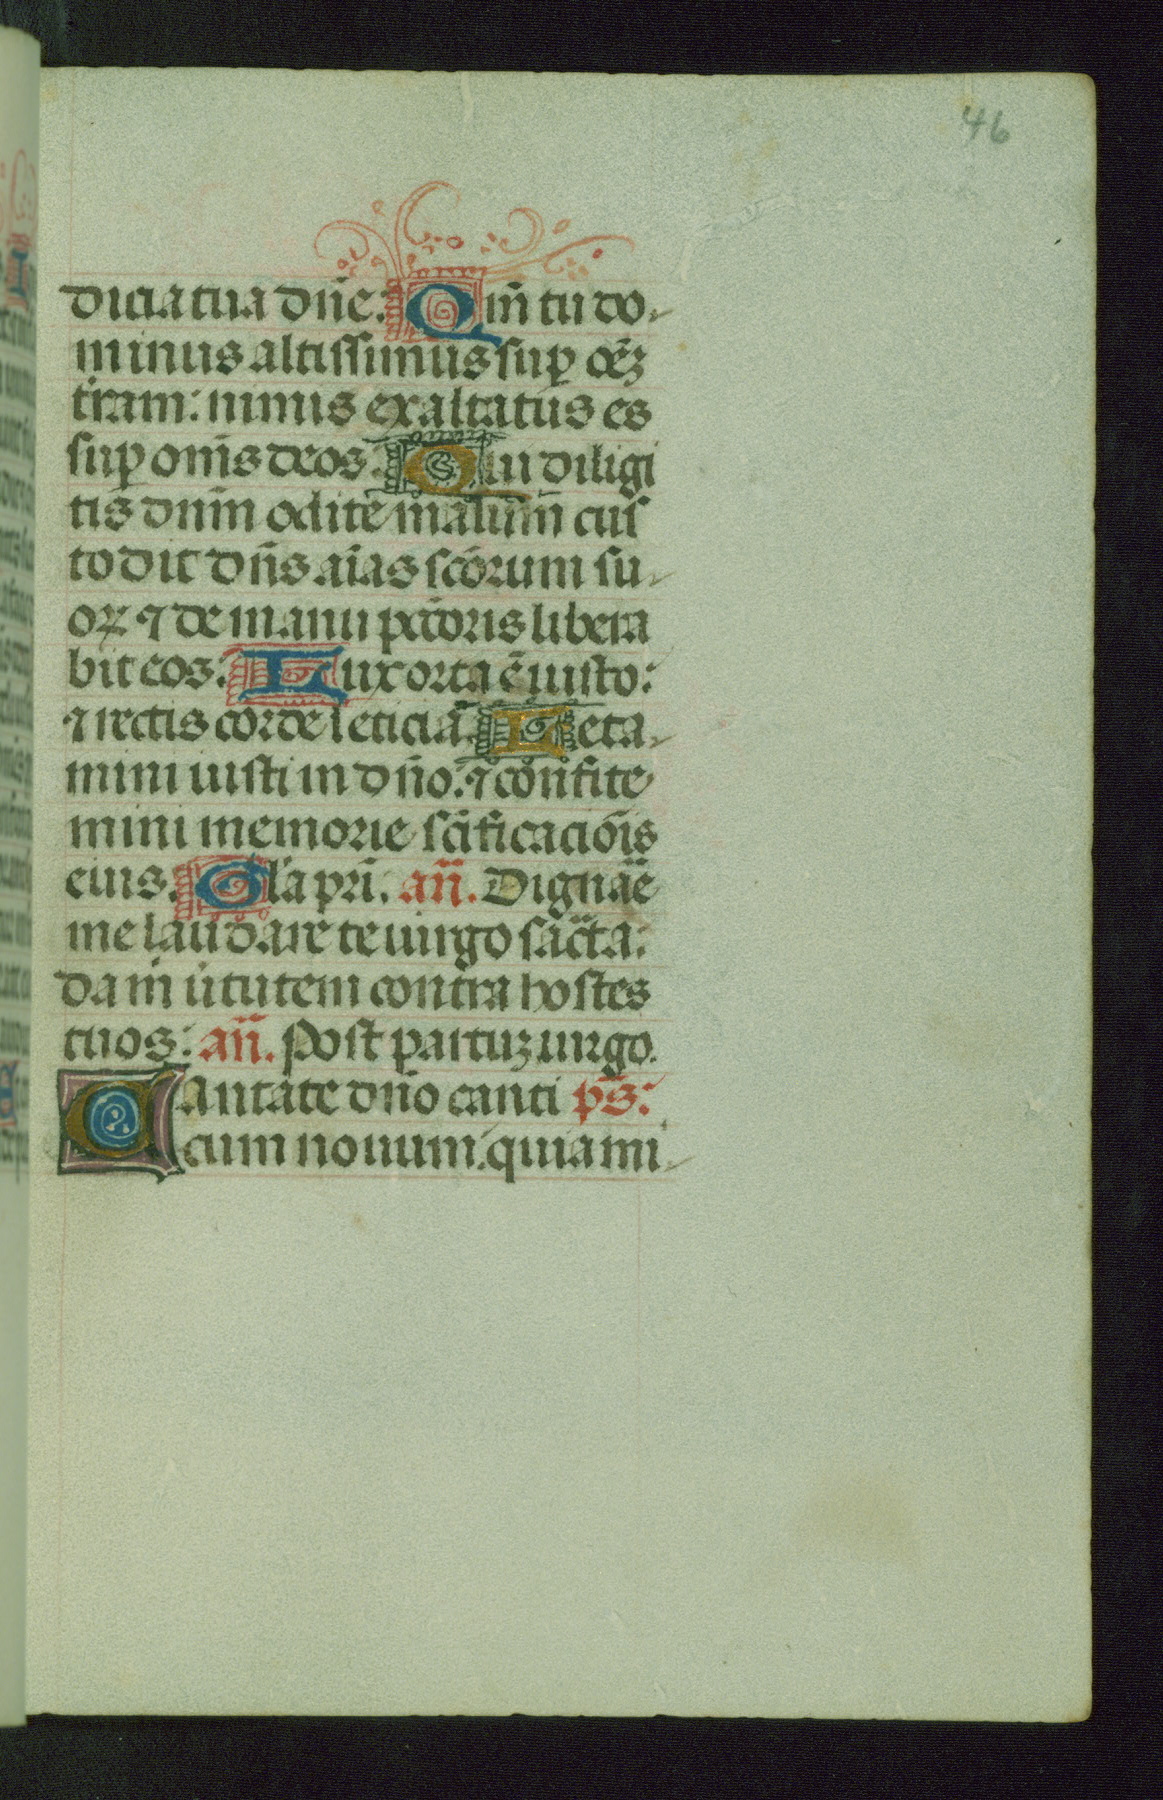 46
dicia tua dn̄e: Qm̄ tu do-
minus altissimus sup̱ oēz
tr̄am: nimis exaltatus es
sup̱ om̄s deos: Qui diligi
tis dnm̄ odite malum̄ cus
todit dn̄s aīas scōrum su-
oꝝ ⁊ de manu pctōris libera
bit eos: Lux orta ē iusto:
⁊ rectis corde leticia. Leta-
mini iusti in dn̄o: ⁊ confite
mini memorie scīficaciōis
eius. Glā pr̄i. an̄. Dignāe
me laudare te uirgo sācta:
da m̄ uītutem contra hostes
tuos: an̄. Post partuz uirgo.
Cantate dn̄o canti ps̄:
cum nouum: quia mi-